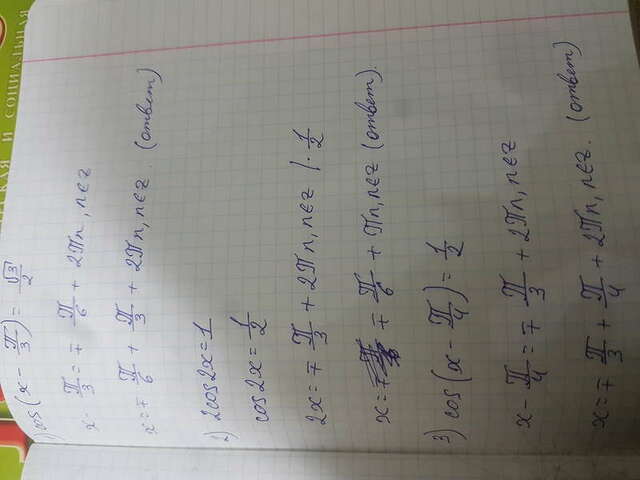 КАЯ И СОЦИАЛЬНАЯ
1) cos(x - π/3) = √3/2
x - π/3 = ∓ π/6 + 2πn, n∈z
x = ∓ π/6 + π/3 + 2πn, n∈z. (ответ)
2) 2cos2x = 1
cos2x = 1/2
2x = ∓ π/3 + 2πn, n∈z |· 1/2
x = ∓ π/6 + πn, n∈z (ответ).
3) cos(x - π/4) = 1/2
x - π/4 = ∓ π/3 + 2πn, n∈z
x = ∓ π/3 + π/4 + 2πn, n∈z. (ответ)